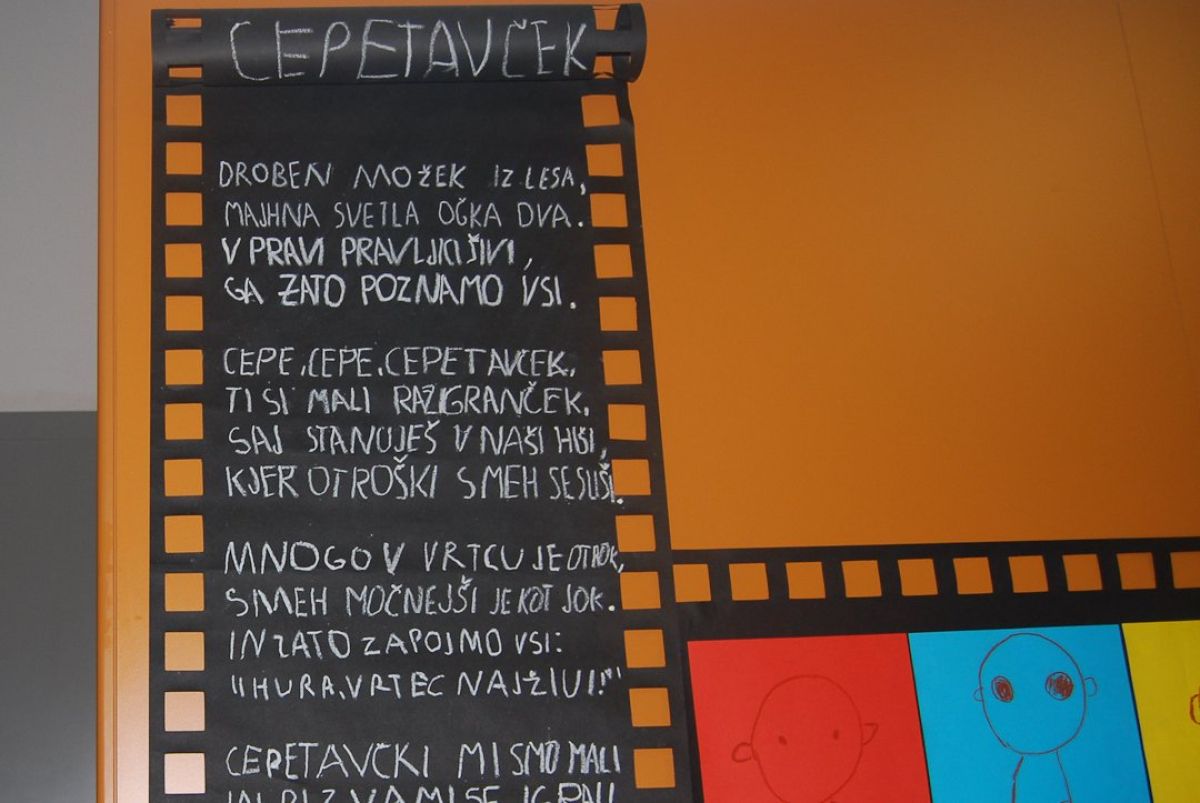 CEPETAVČEK
DROBEN MOŽEK IZ LESA,
MAJHNA SVETLA OČKA DVA.
V PRAVI PRAVLJICI ŽIVI,
GA ZATO POZNAMO VSI.
CEPE, CEPE, CEPETAVČEK,
TI SI MALI RAZIGRANČEK,
SAJ STANUJEŠ V NAŠI HIŠI,
KJER OTROŠKI SMEH SE SLIŠI.
MNOGO V VRTCU JE OTROK,
SMEH MOČNEJŠI JE KOT JOK.
IN ZATO ZAPOJMO VSI:
"HURA, VRTEC NAJ ŽIVI!"
CEPETAVČKI MI SMO MALI
IN BI Z VAMI SE IGRALI